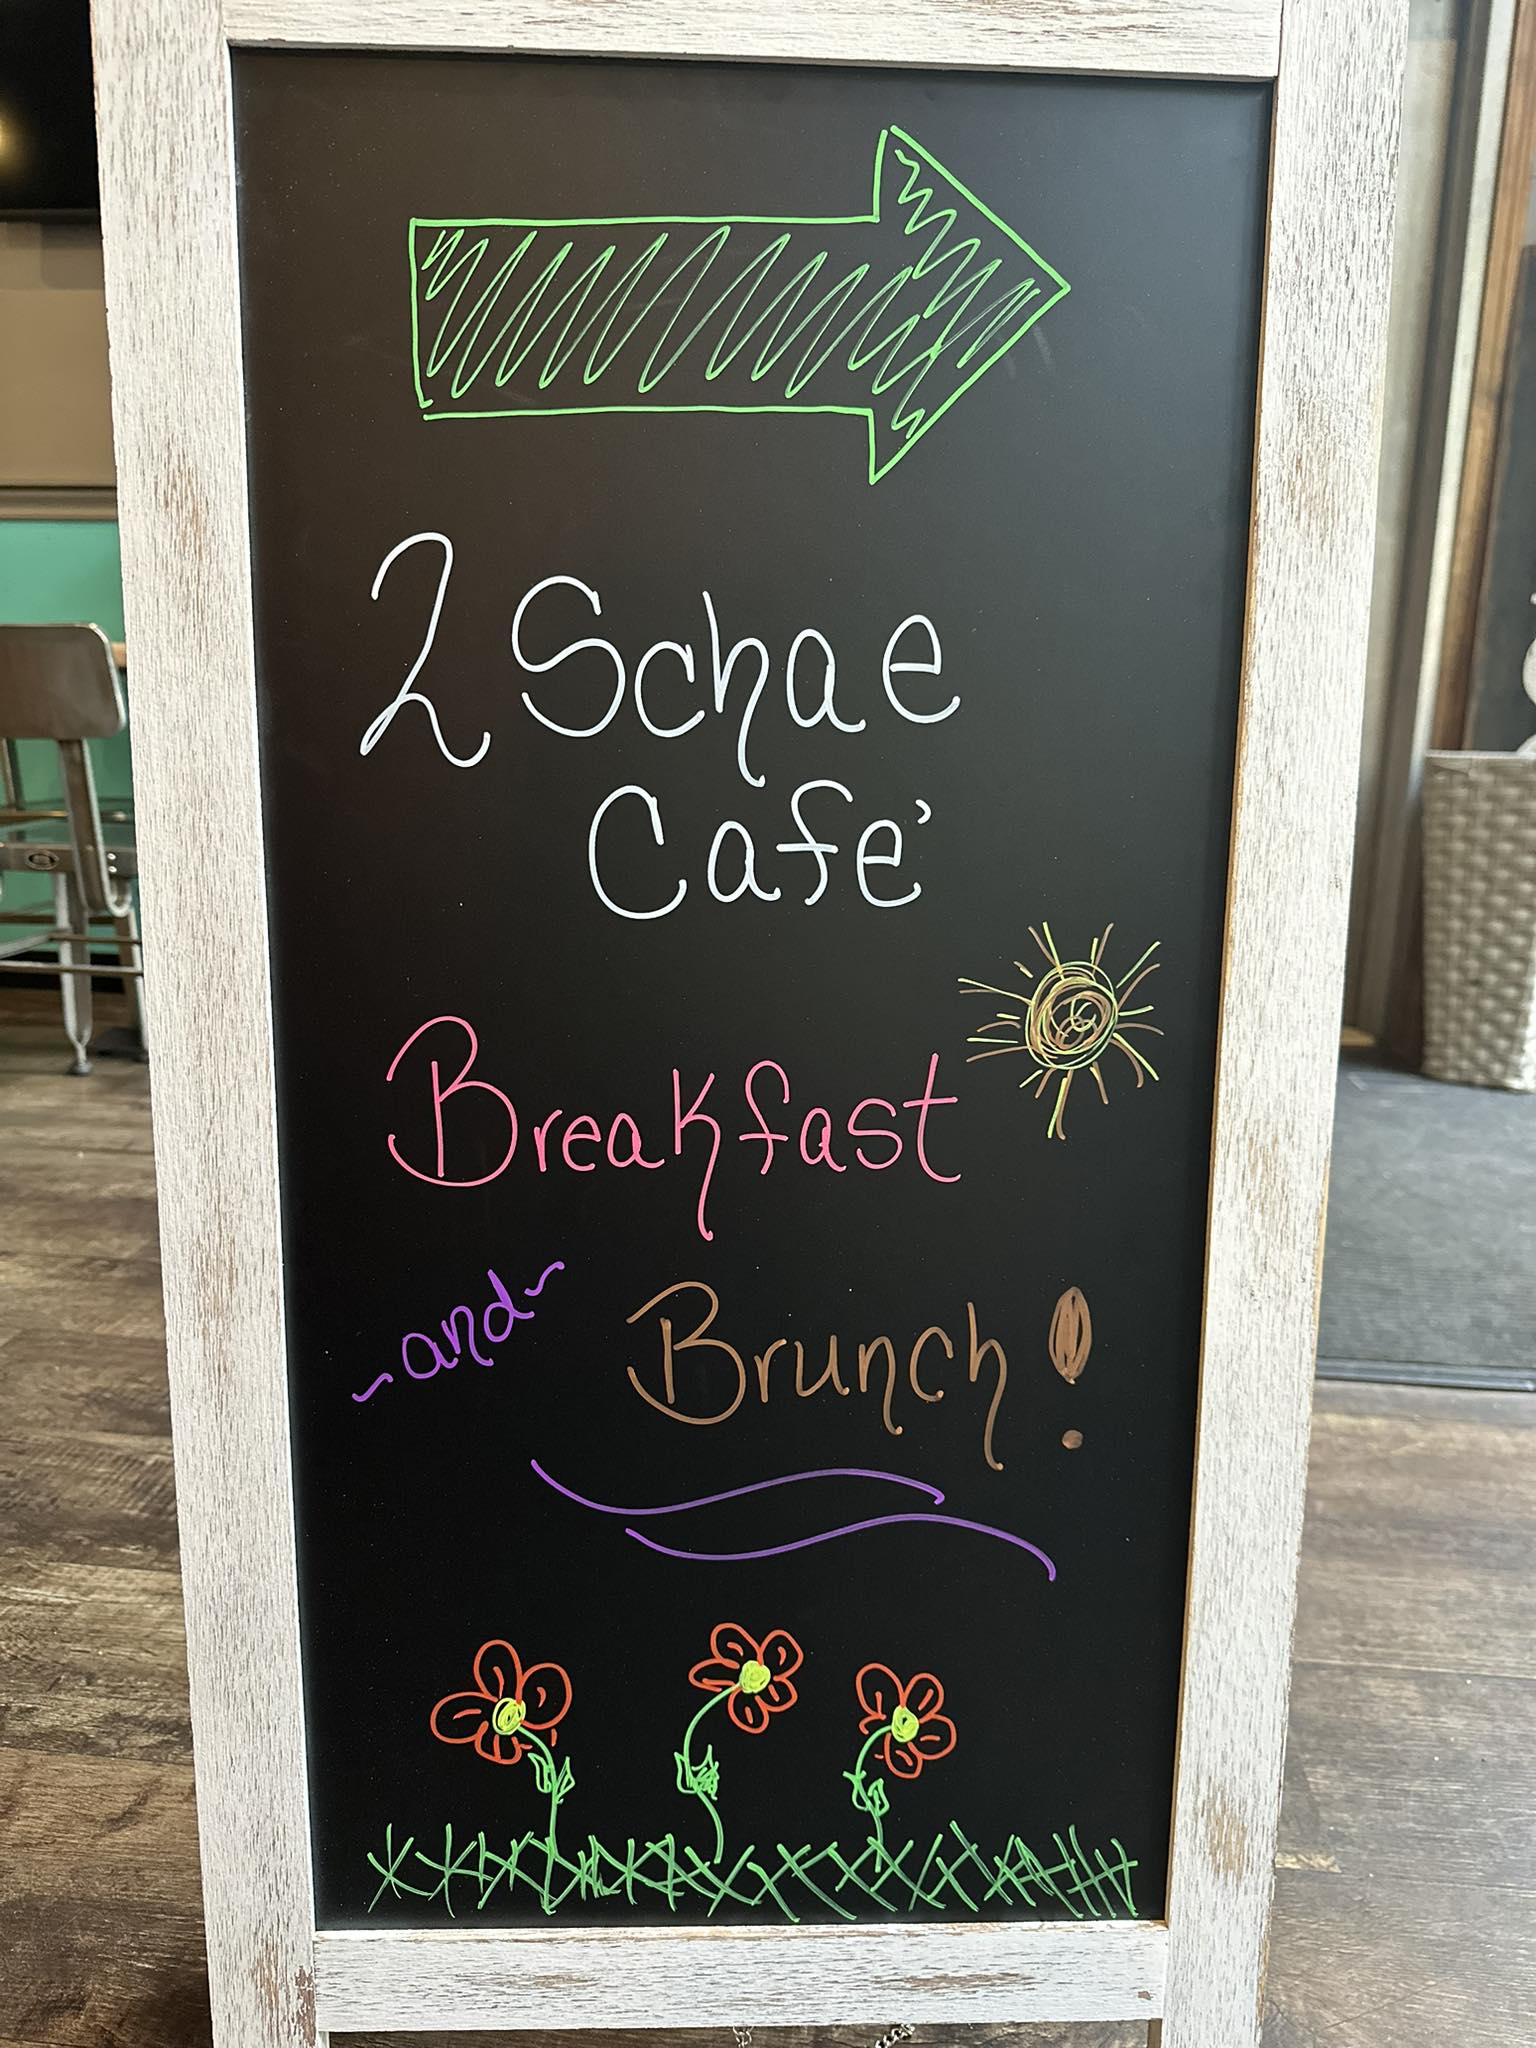 2 Schae
Cafe'
Breakfast
~and~ Brunch!